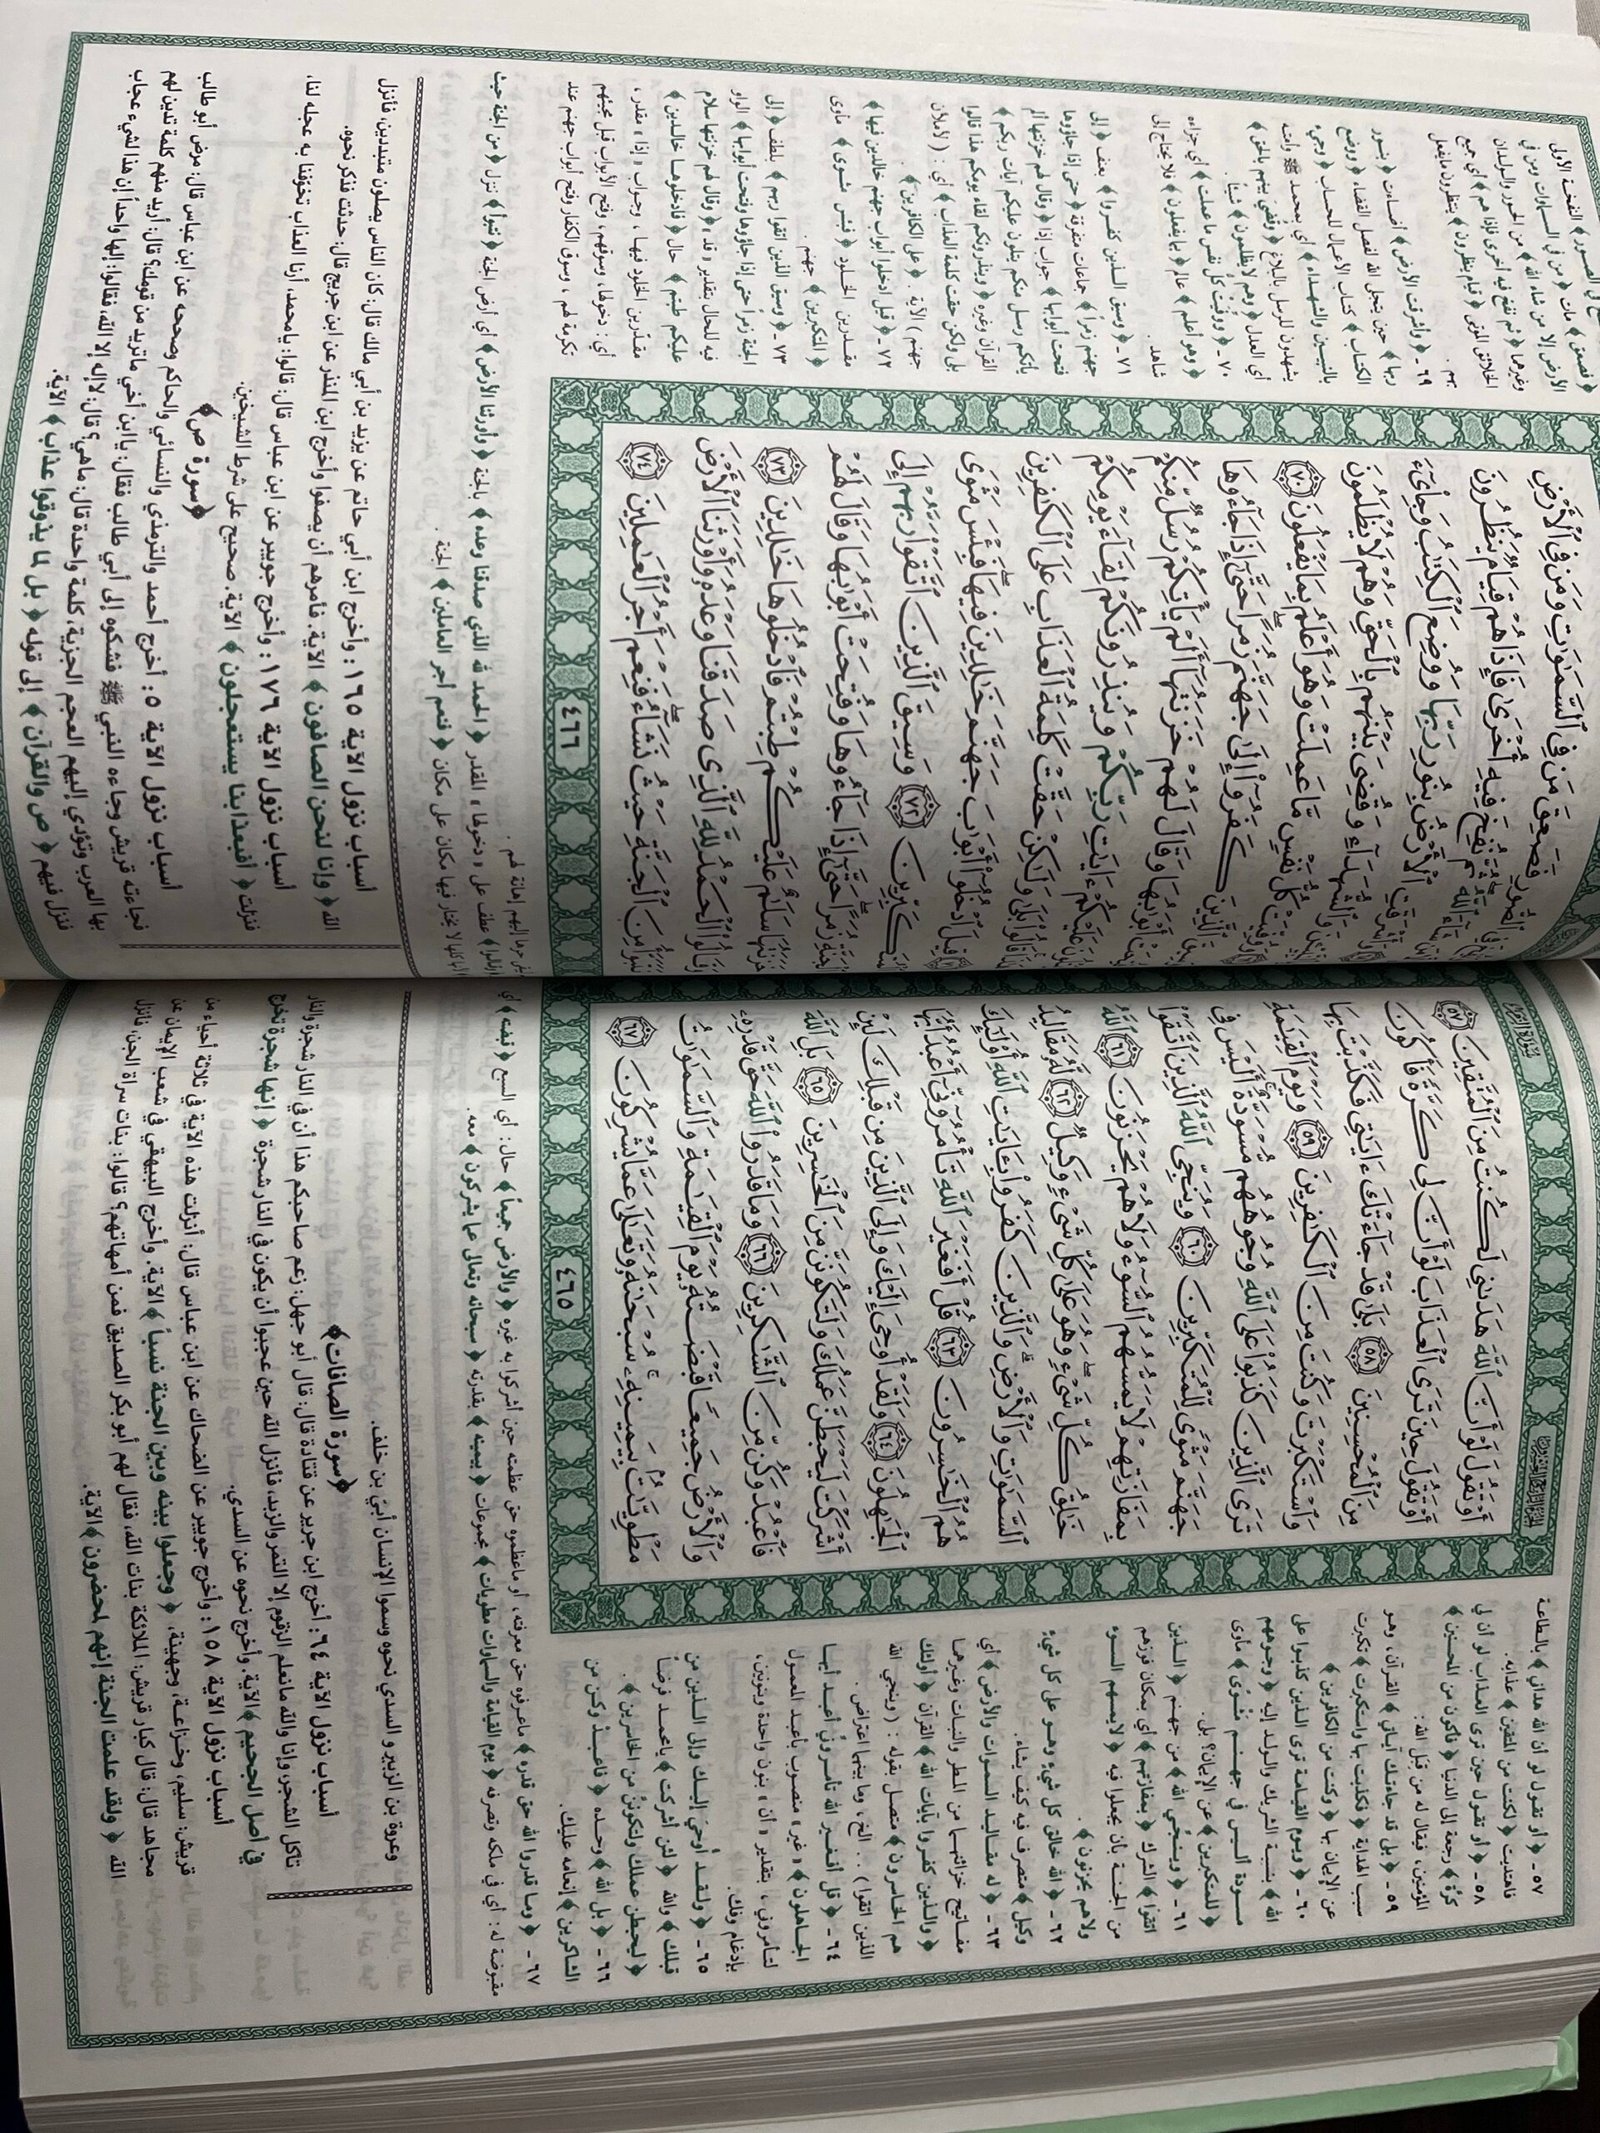 الجزء الرابع والعشرون
سورة الزمر
أَوْ تَقُولَ لَوْ أَنَّ ٱللَّهَ هَدَىٰنِى لَكُنتُ مِنَ ٱلْمُتَّقِينَ ٥٧
أَوْ تَقُولَ حِينَ تَرَى ٱلْعَذَابَ لَوْ أَنَّ لِى كَرَّةً فَأَكُونَ
مِنَ ٱلْمُحْسِنِينَ ٥٨ بَلَىٰ قَدْ جَآءَتْكَ ءَايَٰتِى فَكَذَّبْتَ بِهَا
وَٱسْتَكْبَرْتَ وَكُنتَ مِنَ ٱلْكَٰفِرِينَ ٥٩ وَيَوْمَ ٱلْقِيَٰمَةِ
تَرَى ٱلَّذِينَ كَذَبُوا۟ عَلَى ٱللَّهِ وُجُوهُهُم مُّسْوَدَّةٌ أَلَيْسَ فِى
جَهَنَّمَ مَثْوًى لِّلْمُتَكَبِّرِينَ ٦٠ وَيُنَجِّى ٱللَّهُ ٱلَّذِينَ ٱتَّقَوْا۟
بِمَفَازَتِهِمْ لَا يَمَسُّهُمُ ٱلسُّوٓءُ وَلَا هُمْ يَحْزَنُونَ ٦١ ٱللَّهُ
خَٰلِقُ كُلِّ شَىْءٍ وَهُوَ عَلَىٰ كُلِّ شَىْءٍ وَكِيلٌ ٦٢ لَّهُۥ مَقَالِيدُ
ٱلسَّمَٰوَٰتِ وَٱلْأَرْضِ وَٱلَّذِينَ كَفَرُوا۟ بِـَٔايَٰتِ ٱللَّهِ أُو۟لَٰٓئِكَ
هُمُ ٱلْخَٰسِرُونَ ٦٣ قُلْ أَفَغَيْرَ ٱللَّهِ تَأْمُرُوٓنِّىٓ أَعْبُدُ أَيُّهَا
ٱلْجَٰهِلُونَ ٦٤ وَلَقَدْ أُوحِىَ إِلَيْكَ وَإِلَى ٱلَّذِينَ مِن قَبْلِكَ لَئِنْ
أَشْرَكْتَ لَيَحْبَطَنَّ عَمَلُكَ وَلَتَكُونَنَّ مِنَ ٱلْخَٰسِرِينَ ٦٥ بَلِ ٱللَّهَ
فَٱعْبُدْ وَكُن مِّنَ ٱلشَّٰكِرِينَ ٦٦ وَمَا قَدَرُوا۟ ٱللَّهَ حَقَّ قَدْرِهِۦ
وَٱلْأَرْضُ جَمِيعًا قَبْضَتُهُۥ يَوْمَ ٱلْقِيَٰمَةِ وَٱلسَّمَٰوَٰتُ
مَطْوِيَّٰتٌۢ بِيَمِينِهِۦ سُبْحَٰنَهُۥ وَتَعَٰلَىٰ عَمَّا يُشْرِكُونَ ٦٧
٤٦٥
٥٧ ـ ﴿ أو تقول لو أن الله هداني ﴾ بالطاعة
فاهتديت ﴿ لكنت من المتقين ﴾ عذابه.
٥٨ ـ ﴿ أو تقول حين ترى العذاب لو أن لي
كرَّة ﴾ رجعة إلى الدنيا ﴿ فأكون من المحسنين ﴾
المؤمنين، فيقال له من قبل الله:
٥٩ ـ ﴿ بلى قد جاءتك آياتي ﴾ القرآن، وهو
سبب الهداية ﴿ فكذبت بها واستكبرت ﴾ تكبرت
عن الإيمان بها ﴿ وكنت من الكافرين ﴾
٦٠ ـ ﴿ ويوم القيامة ترى الذين كذبوا على
الله ﴾ بنسبة الشريك والولد إليه ﴿ وجوههم
مسودة أليس في جهنم مثوىً ﴾ مأوى
﴿ للمتكبرين ﴾ عن الإيمان؟ بلى.
٦١ ـ ﴿ وينجّي الله ﴾ من جهنم ﴿ الذين
اتقوا ﴾ الشرك ﴿ بمفازتهم ﴾ أي بمكان فوزهم
من الجنة بأن يجعلوا فيه ﴿ لا يمسهم السوء
ولا هم يحزنون ﴾.
٦٢ ـ ﴿ الله خالق كل شيءٍ وهو على كل شيءٍ
وكيل ﴾ متصرف فيه كيف يشاء.
٦٣ ـ ﴿ له مقاليد السموات والأرض ﴾ أي
مفاتيح خزائنهما من المطر والنبات وغيرهما
﴿ والذين كفروا بآيات الله ﴾ القرآن ﴿ أولئك
هم الخاسرون ﴾ متصل بقوله: ( وينجي الله
الذين اتقوا ) . . الخ، وما بينهما اعتراض.
٦٤ ـ ﴿ قل أفغير الله تأمرونيِّ أعبد أيها
الجاهلون ﴾ « غير » منصوب بأعبد المعمول
لتأمروني، بتقدير « أن » بنون واحدة وبنونين،
بإدغام وفك.
٦٥ ـ ﴿ ولقد أُوحيَ إليك وإلى الذين من
قبلك ﴾ والله ﴿ لئن أشركت ﴾ يا محمد فرضاً
﴿ ليحبطن عملك ولتكوننَّ من الخاسرين ﴾.
٦٦ ـ ﴿ بل الله ﴾ وحده ﴿ فاعبدْ وكن من
الشاكرين ﴾ إنعامه عليك.
٦٧ ـ ﴿ وما قدروا الله حق قدره ﴾ ما عرفوه حق معرفته، أو ما عظموه حق عظمته حين أشركوا به غيره ﴿ والأرض جميعاً ﴾ حال: أي السبع ﴿ قبضته ﴾ أي
مقبوضة له: أي في ملكه وتصرفه ﴿ يوم القيامة والسماوات مطويات ﴾ مجموعات ﴿ بيمينه ﴾ بقدرته ﴿ سبحانه وتعالى عما يشركون ﴾ معه.
وعروة بن الزبير والسدي نحوه وسموا الإنسان أبيّ بن خلف.
﴿سورة الصافات﴾
أسباب نزول الآية ٦٤: أخرج ابن جرير عن قتادة قال: قال أبو جهل: زعم صاحبكم هذا أن في النار شجرة والنار
تأكل الشجر، وإنا والله ما نعلم الزقوم إلا التمر والزبد، فأنزل الله حين عجبوا أن يكون في النار شجرة ﴿ إنها شجرة تخرج
في أصل الجحيم ﴾ الآية، وأخرج نحوه عن السدي.
أسباب نزول الآية ١٥٨: وأخرج جويبر عن الضحاك عن ابن عباس قال: أنزلت هذه الآية في ثلاثة أحياء من
قريش: سليم، وخزاعة، وجهينة، ﴿ وجعلوا بينه وبين الجنة نسباً ﴾ الآية. وأخرج البيهقي في شعب الإيمان عن
مجاهد قال: قال كبار قريش: الملائكة بنات الله، فقال لهم أبو بكر الصديق فمن أمهاتهم؟ قالوا: بنات سراة الجن، فأنزل
الله ﴿ ولقد علمت الجنة إنهم لمحضرون ﴾ الآية.
فَصَعِقَ مَن فِى ٱلسَّمَٰوَٰتِ وَمَن فِى ٱلْأَرْضِ
ثُمَّ نُفِخَ فِيهِ أُخْرَىٰ فَإِذَا هُمْ قِيَامٌ يَنظُرُونَ
ٱلْأَرْضُ بِنُورِ رَبِّهَا وَوُضِعَ ٱلْكِتَٰبُ وَجِا۟ىٓءَ
وَٱلشُّهَدَآءِ وَقُضِىَ بَيْنَهُم بِٱلْحَقِّ وَهُمْ لَا يُظْلَمُونَ
كُلُّ نَفْسٍ مَّا عَمِلَتْ وَهُوَ أَعْلَمُ بِمَا يَفْعَلُونَ ٧٠
ٱلَّذِينَ كَفَرُوٓا۟ إِلَىٰ جَهَنَّمَ زُمَرًا حَتَّىٰٓ إِذَا جَآءُوهَا
أَبْوَٰبُهَا وَقَالَ لَهُمْ خَزَنَتُهَآ أَلَمْ يَأْتِكُمْ رُسُلٌ مِّنكُمْ
عَلَيْكُمْ ءَايَٰتِ رَبِّكُمْ وَيُنذِرُونَكُمْ لِقَآءَ يَوْمِكُمْ
قَالُوا۟ بَلَىٰ وَلَٰكِنْ حَقَّتْ كَلِمَةُ ٱلْعَذَابِ عَلَى ٱلْكَٰفِرِينَ
قِيلَ ٱدْخُلُوٓا۟ أَبْوَٰبَ جَهَنَّمَ خَٰلِدِينَ فِيهَا فَبِئْسَ مَثْوَى
ٱلْمُتَكَبِّرِينَ ٧٢ وَسِيقَ ٱلَّذِينَ ٱتَّقَوْا۟ رَبَّهُمْ إِلَى
ٱلْجَنَّةِ زُمَرًا حَتَّىٰٓ إِذَا جَآءُوهَا وَفُتِحَتْ أَبْوَٰبُهَا وَقَالَ لَهُمْ
خَزَنَتُهَا سَلَٰمٌ عَلَيْكُمْ طِبْتُمْ فَٱدْخُلُوهَا خَٰلِدِينَ ٧٣
وَقَالُوا۟ ٱلْحَمْدُ لِلَّهِ ٱلَّذِى صَدَقَنَا وَعْدَهُۥ وَأَوْرَثَنَا ٱلْأَرْضَ
نَتَبَوَّأُ مِنَ ٱلْجَنَّةِ حَيْثُ نَشَآءُ فَنِعْمَ أَجْرُ ٱلْعَٰمِلِينَ ٧٤
٤٦٦
في الصور ﴾ النفخة الأولى
﴿ فصعق ﴾ مات ﴿ من في السموات ومن في
الأرض إلا من شاء الله ﴾ من الحور والولدان
وغيرهما ﴿ ثم نفخ فيه أخرى فإذا هم ﴾ أي جميع
الخلائق الموتى ﴿ قيام ينظرون ﴾ ينتظرون ما يفعل
بهم .
٦٩ ـ ﴿ وأشرقت الأرض ﴾ أضاءت ﴿ بنور
ربها ﴾ حين يتجلى الله لفصل القضاء ﴿ ووضع
الكتاب ﴾ كتاب الأعمال للحساب ﴿ وجيء
بالنبيين والشهداء ﴾ أي بمحمد ﷺ وأمته
يشهدون للرسل بالبلاغ ﴿ وقُضيَ بينهم بالحق ﴾
أي العدل ﴿ وهم لا يظلمون ﴾ شيئاً .
٧٠ ـ ﴿ ووفيت كلُّ نفس ما عملت ﴾ أي جزاءه
﴿ وهو أعلم ﴾ عالم ﴿ بما يفعلون ﴾ فلا يحتاج إلى
شاهد.
٧١ ـ ﴿ وسيق الذين كفروا ﴾ بعنف ﴿ إلى
جهنم زمراً ﴾ جماعات متفرقة ﴿ حتى إذا جاؤوها
فتحت أبوابها ﴾ جواب إذا ﴿ وقال لهم خزنتها ألم
يأتكم رسل منكم يتلون عليكم آيات ربكم ﴾
القرآن وغيره ﴿ وينذرونكم لقاء يومكم هذا قالوا
بلى ولكن حقت كلمة العذاب ﴾ أي : ( لأملأن
جهنم ) الآية . ﴿ على الكافرين ﴾
٧٢ ـ ﴿ قيل ادخلوا أبواب جهنم خالدين فيها ﴾
مقدرين الخلود ﴿ فبئس مثوى ﴾ مأوى
﴿ المتكبرين ﴾ جهنم .
٧٣ ـ ﴿ وسيق الذين اتقوا ربهم ﴾ بلطف ﴿ إلى
الجنة زمراً حتى إذا جاؤوها وفتحت أبوابها ﴾ الواو
فيه للحال بتقدير « قد » ﴿ وقال لهم خزنتها سلام
عليكم طبتم ﴾ حال ﴿ فادخلوها خالدين ﴾
مقدَّرين الخلود فيها ، وجواب « إذا » مقدر ،
أي : دخولها، وسوقهم، وفتح الأبواب قبل مجيئهم
تكرمة لهم ، وسوق الكفار وفتح أبواب جهنم عند
وأورثنا الأرض ﴾ أي أرض الجنة ﴿ نتبوأ ﴾ ننزل ﴿ من الجنة حيث
﴿ فنعم أجر العاملين ﴾ الجنة .
أسباب نزول الآية ١٦٥: وأخرج ابن أبي حاتم عن يزيد بن أبي مالك قال: كان الناس يصلون متبددين، فأنزل
الله ﴿ وإنا لنحن الصافون ﴾ الآية. فأمرهم أن يصفوا وأخرج ابن المنذر عن ابن جريج قال: حدثت فذكر نحوه.
أسباب نزول الآية ١٧٦: وأخرج جويبر عن ابن عباس قال: قالوا: يا محمد، أرنا العذاب تخوفنا به عجله لنا،
فنزلت ﴿ أفبعذابنا يستعجلون ﴾ الآية. صحيح على شرط الشيخين.
﴿سورة ص﴾
أسباب نزول الآية ٥: أخرج أحمد والترمذي والنسائي والحاكم وصححه عن ابن عباس قال: مرض أبو طالب
فجاءته قريش وجاءه النبي ﷺ فشكوه إلى أبي طالب فقال: يا ابن أخي ما تريد من قومك؟ قال: أريد منهم كلمة تدين لهم
بها العرب وتؤدي إليهم العجم الجزية، كلمة واحدة قال: ما هي؟ قال: لا إله إلا الله، فقالوا: إلهاً واحداً إن هذا لشيء عجاب
فنزل فيهم ﴿ ص والقرآن ﴾ إلى قوله ﴿ بل لما يذوقوا عذاب ﴾ الآية.